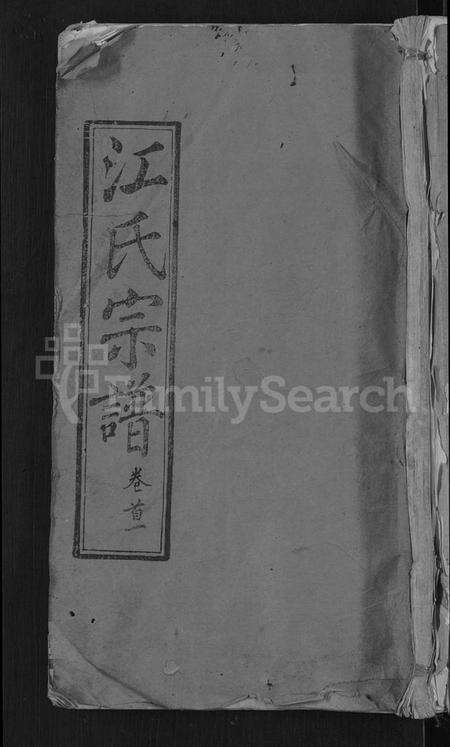 江氏宗譜
卷首一
FamilySearch